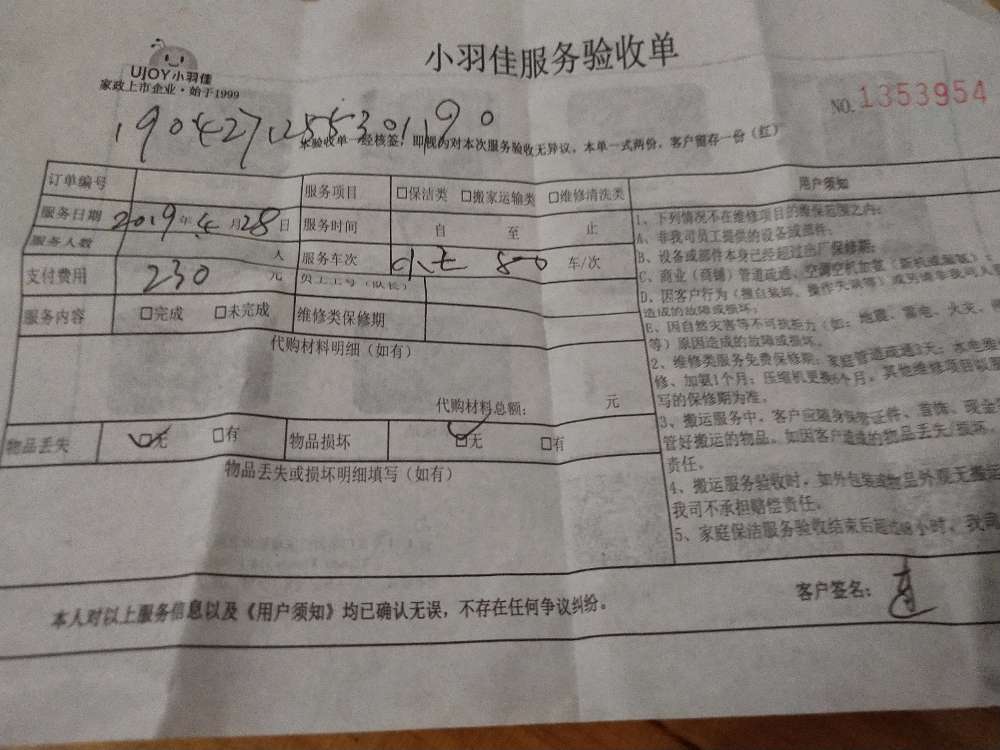 小羽佳服务验收单
UJOY小羽佳
家政上市企业·始于1999
NO.1353954
190427125530119 0
本验收单一经核签，即视为对本次服务验收无异议，本单一式两份，客户留存一份（红）
订单编号 服务项目 □保洁类 □搬家运输类 □维修清洗类
服务日期 2019年4月28日 服务时间 自 至 止
服务人数 人 服务车次 车/次
支付费用 230元 员工工号（队长）
服务内容 □完成 □未完成 维修类保修期
代购材料明细（如有）
代购材料总额： 元
物品丢失 ☑无 □有 物品损坏 ☑无 □有
物品丢失或损坏明细填写（如有）
用户须知
1、下列情况不在维修项目的维保范围之内：
A、非我司员工提供的设备或部件；
B、设备或部件本身已经超过出厂保修期；
C、商业（商铺）管道疏通、空调空机加氨（新机或漏氨）；
D、因客户行为（擅自装卸、操作失误等）或另请非我司人
造成的故障或损坏；
E、因自然灾害等不可抗拒力（如：地震、雷电、火灾、
等）原因造成的故障或损坏。
2、维修类服务免费保修期：家庭管道疏通3天；水电维
修、加氨1个月；压缩机更换6个月，其他维修项目以
写的保修期为准。
3、搬运服务中，客户应随身保管证件、首饰、现金
管好搬运的物品。如因客户造成的物品丢失/损坏，
责任。
4、搬运服务验收时，如外包装或物品外观无搬运
我司不承担赔偿责任。
5、家庭保洁服务验收结束后超过48小时，我司
本人对以上服务信息以及《用户须知》均已确认无误，不存在任何争议纠纷。
客户签名：